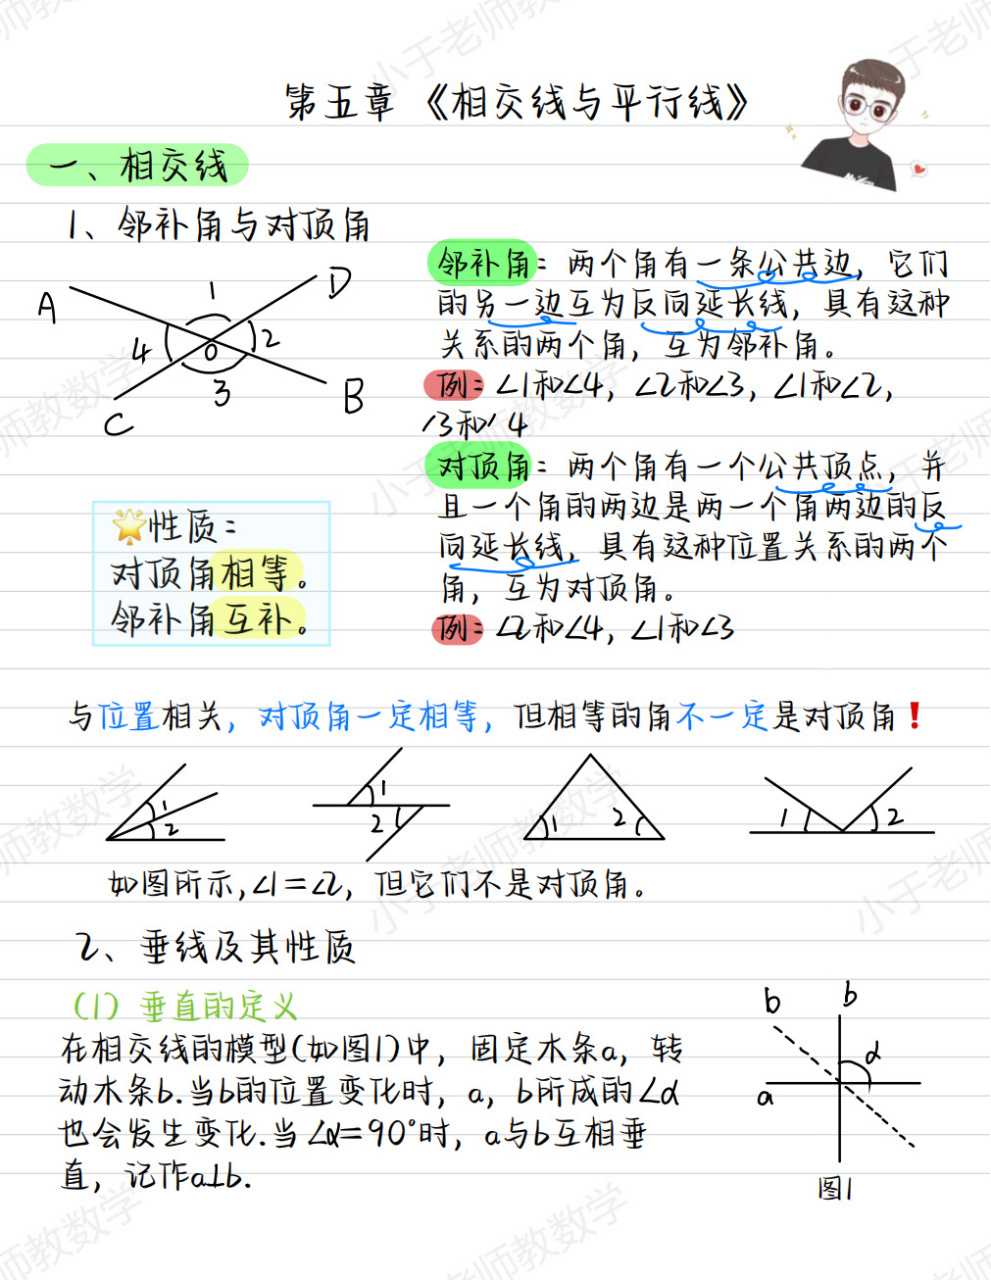 第五章《相交线与平行线》
一、相交线
1、邻补角与对顶角
A
D
1
4
O
2
3
B
C
邻补角：两个角有一条公共边，它们
的另一边互为反向延长线，具有这种
关系的两个角，互为邻补角。
例：∠1和∠4，∠2和∠3，∠1和∠2，
∠3和∠4
对顶角：两个角有一个公共顶点，并
且一个角的两边是两一个角两边的反
向延长线，具有这种位置关系的两个
角，互为对顶角。
例：∠2和∠4，∠1和∠3
🌟性质：
对顶角相等。
邻补角互补。
与位置相关，对顶角一定相等，但相等的角不一定是对顶角❗
1
2
1
2
1
2
1
2
如图所示,∠1=∠2，但它们不是对顶角。
2、垂线及其性质
（1）垂直的定义
在相交线的模型(如图1)中，固定木条a，转
动木条b.当b的位置变化时，a，b所成的∠α
也会发生变化.当∠α=90°时，a与b互相垂
直，记作a⊥b.
b
b
α
a
图1
小于老师教数学